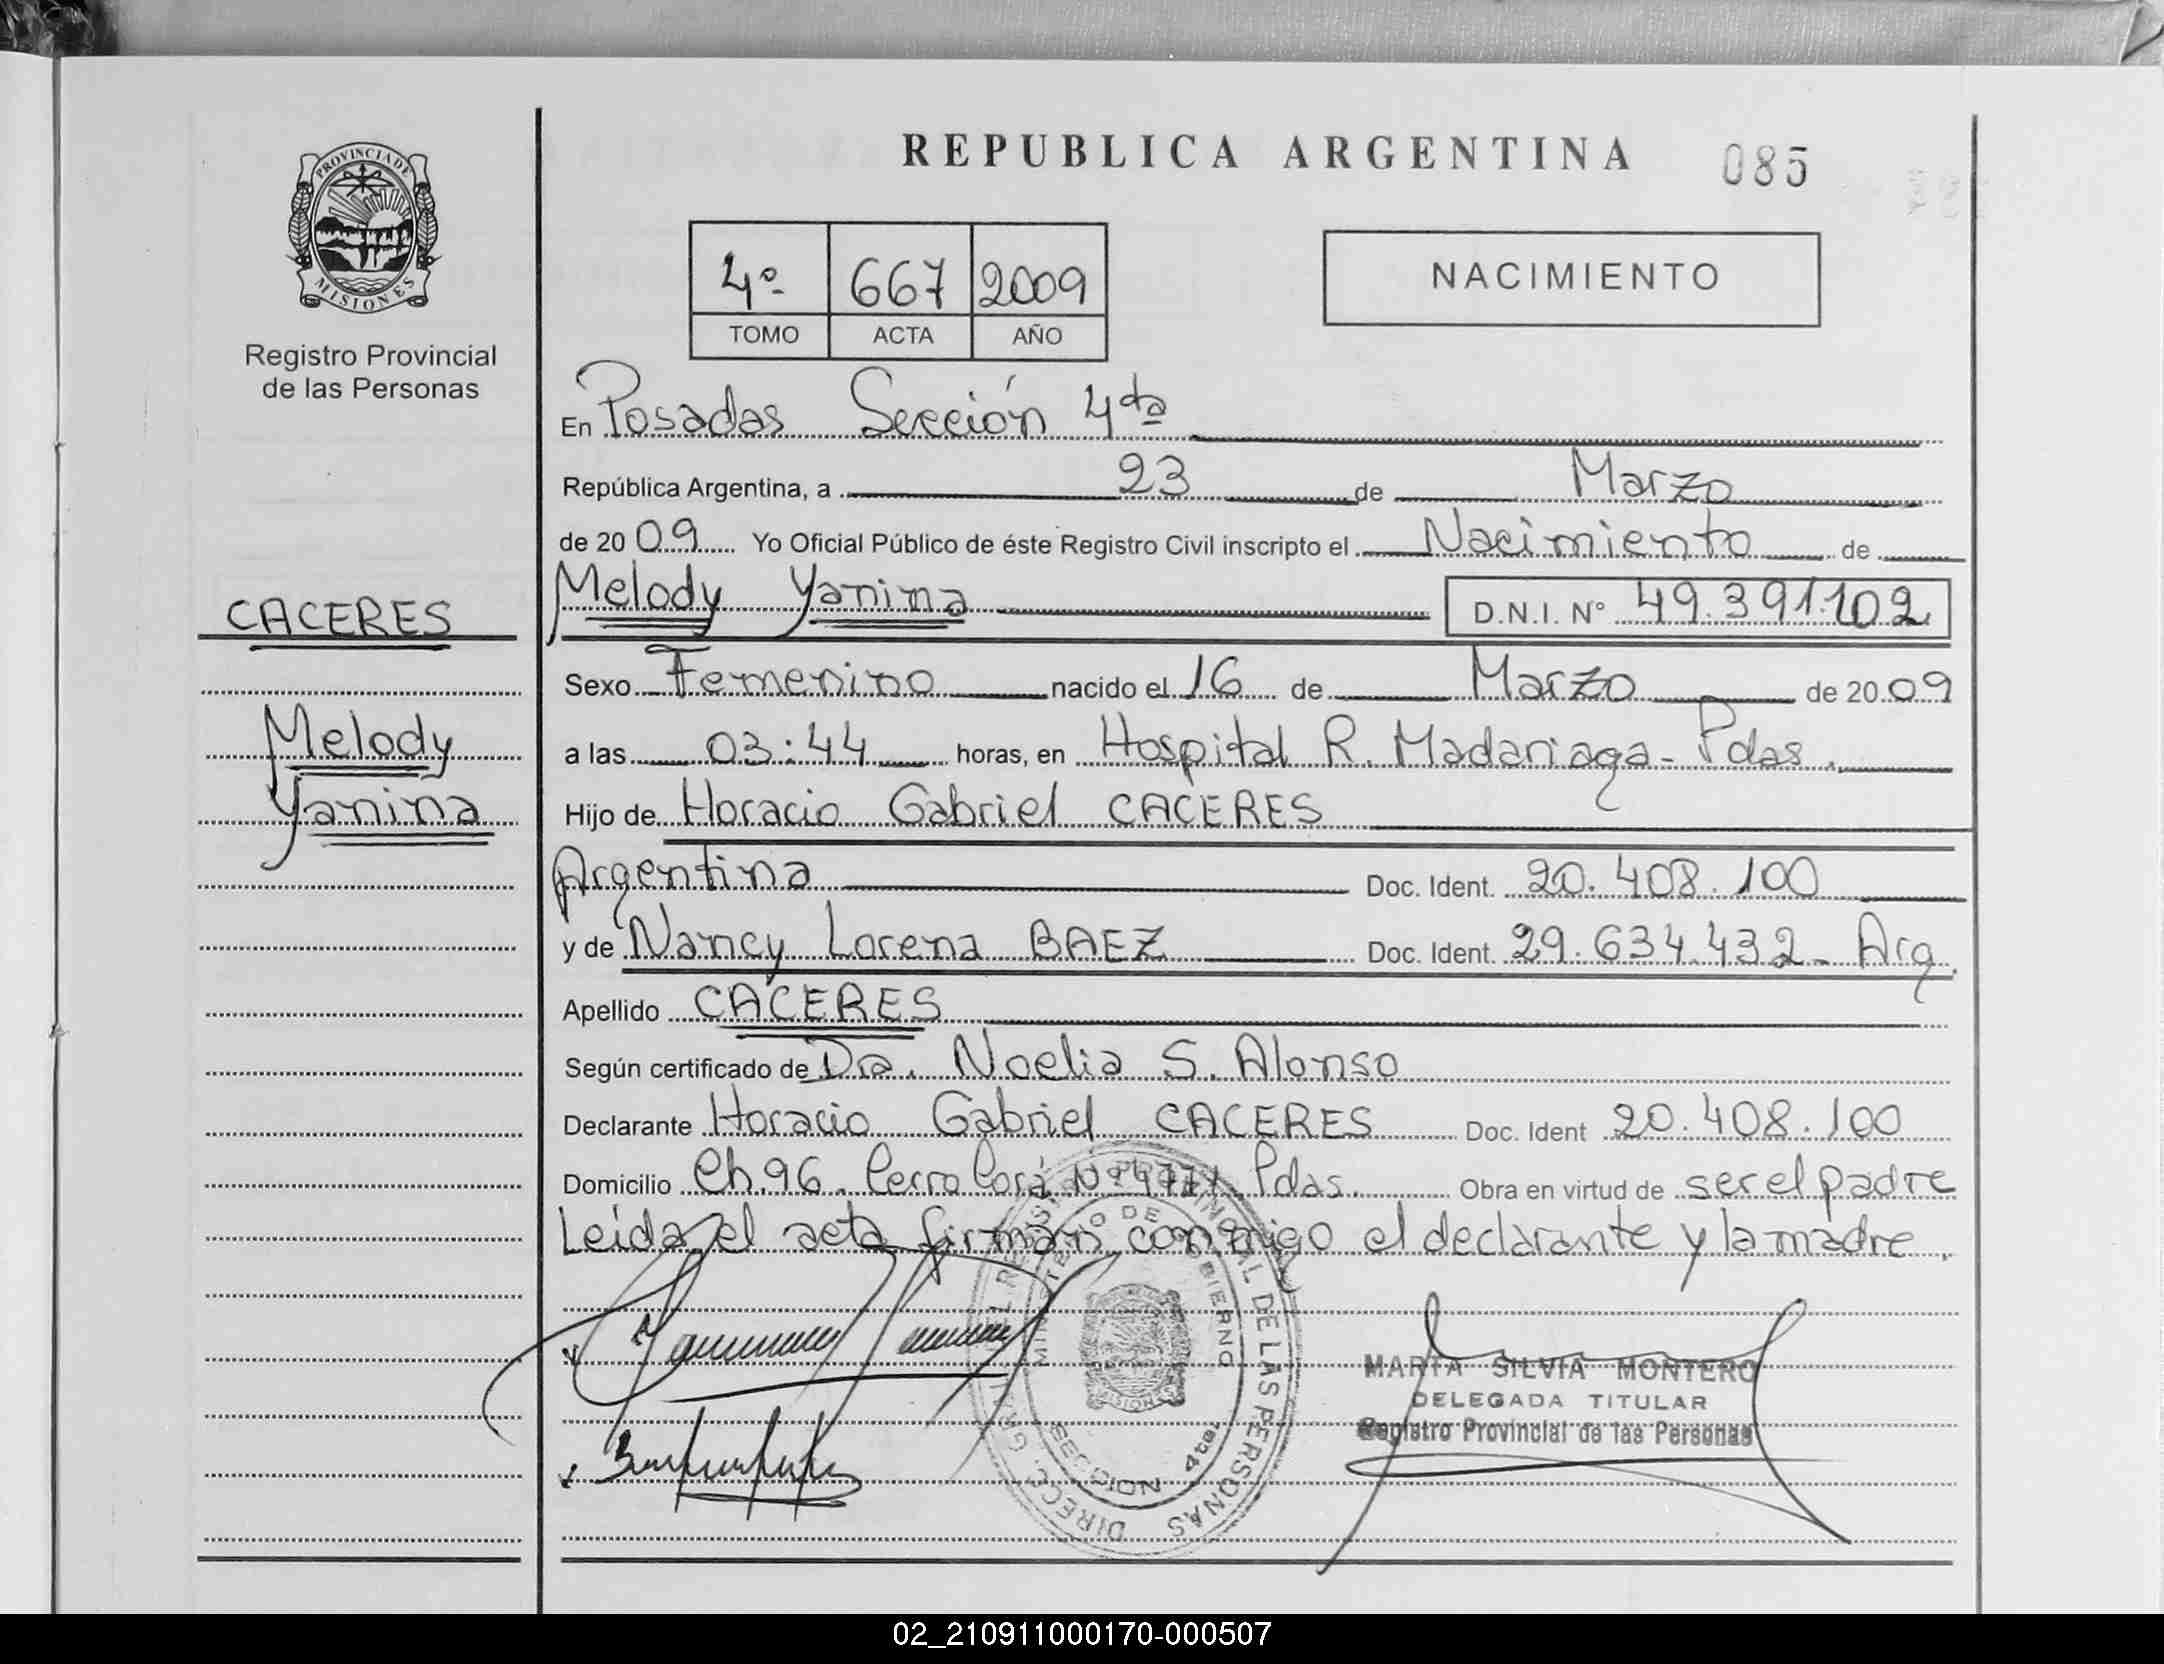 REPUBLICA ARGENTINA 085
PROVINCIA DE
MISIONES
Registro Provincial
de las Personas
4º 667 2009
TOMO ACTA AÑO
NACIMIENTO
En Posadas Sección 4ta
República Argentina, a 23 de Marzo
de 2009 Yo Oficial Público de éste Registro Civil inscripto el Nacimiento de
CACERES
Melody Yanina D.N.I. Nº 49.391.102
Sexo Femenino nacido el 16 de Marzo de 2009
Melody
a las 03:44 horas, en Hospital R. Madariaga - Pdas.
Yanina
Hijo de Horacio Gabriel CACERES
Argentina Doc. Ident. 20.408.100
y de Nancy Lorena BAEZ Doc. Ident. 29.634.432 - Arg.
Apellido CACERES
Según certificado de Dra. Noelia S. Alonso
Declarante Horacio Gabriel CACERES Doc. Ident 20.408.100
Domicilio Ch. 96. Cerro Corá Nº 4771 Pdas. Obra en virtud de ser el padre
Leída el acta firman conmigo el declarante y la madre.
MINISTERIO DE GOBIERNO
SECCION 4ta.
DE LAS PERSONAS
MARTA SILVIA MONTERO
DELEGADA TITULAR
Registro Provincial de las Personas
02_210911000170-000507